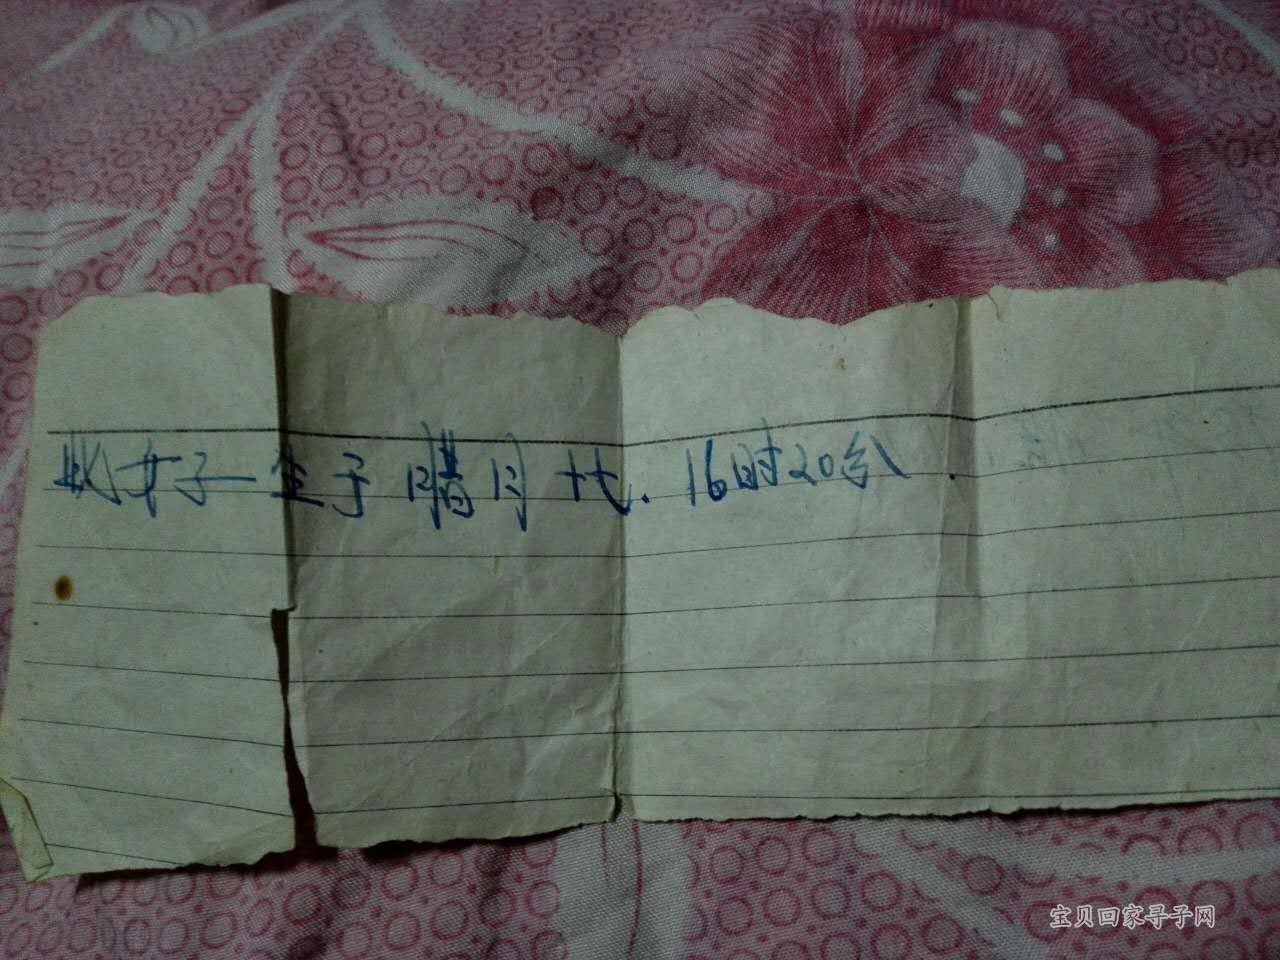 此女子生于腊月十七.16时20分.
宝贝回家寻子网